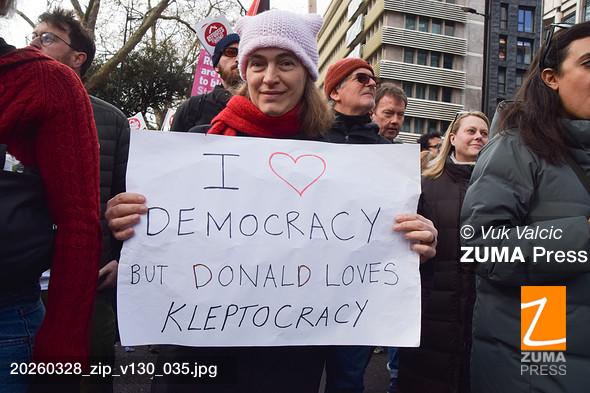 I ♡
DEMOCRACY
BUT DONALD LOVES
KLEPTOCRACY
© Vuk Valcic
ZUMA Press
Z
ZUMA
PRESS
20260328_zip_v130_035.jpg